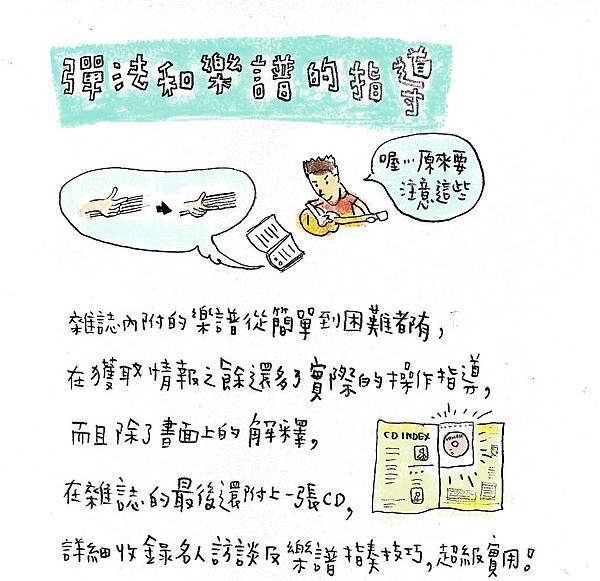 彈法和樂譜的指導
喔…原來要
注意這些
雜誌內附的樂譜從簡單到困難都有，
在獲取情報之餘還多了實際的操作指導，
而且除了書面上的解釋，
CD INDEX
在雜誌的最後還附上一張CD，
詳細收錄名人訪談及樂譜指奏技巧，超級實用！